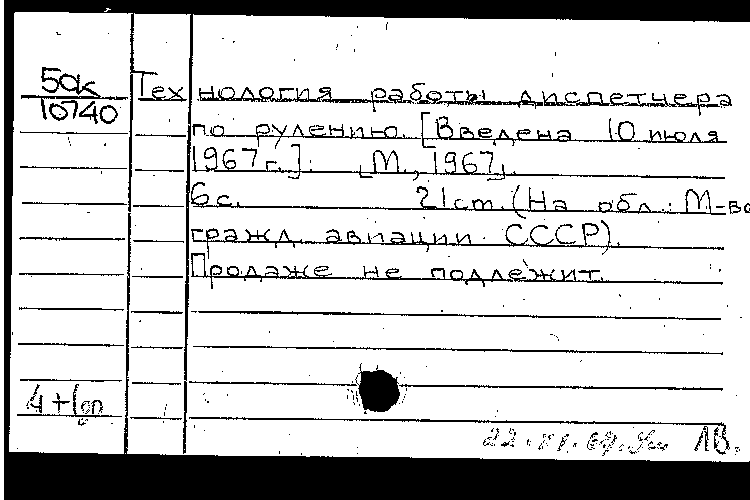 50к
10740
Технология работы диспетчера
по рулению. [Введена 10 июля
1967 г.]. [М., 1967].
6 с. 21 см. (На обл.: М-во
гражд. авиации СССР).
Продаже не подлежит.
4+1оп
ЛВ.